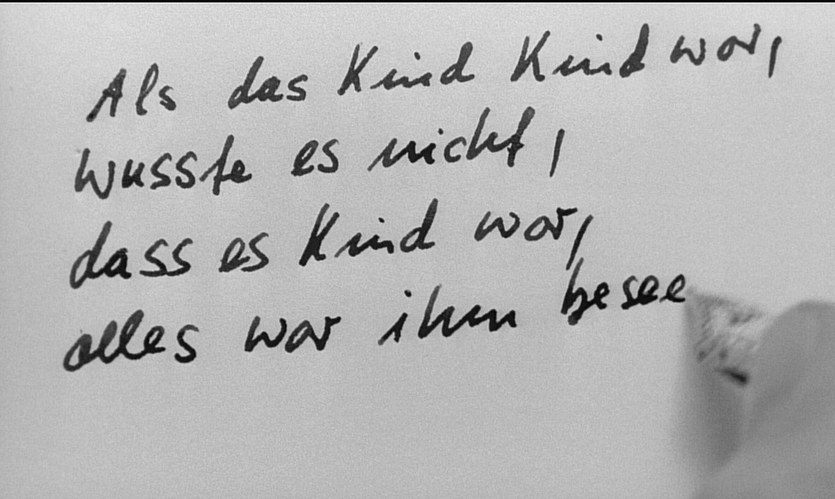 Als das Kind Kind war,
wusste es nicht,
dass es Kind war,
alles war ihm besee